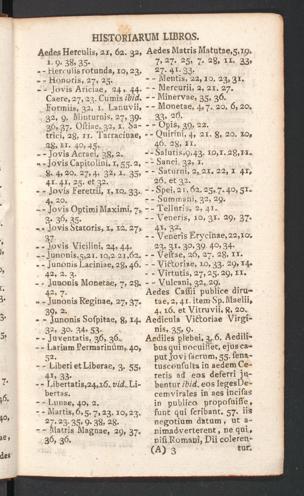 HISTORIARUM LIBROS.
Aedes Herculis, 21, 62. 32,
1. 9. 38, 35.
-- Herculis rotunda, 10, 23.
-- Honoris, 27, 25.
-- Jovis Ariciae, 24. 44.
Caere, 27, 23. Cumis ibid.
Formiis, 32, 1. Lanuvii,
32, 9. Minturnis, 27, 39.
36, 37. Ostiae, 32, 1. Sa-
trici, 28, 11. Tarracinae,
28, 11. 40, 45.
-- Jovis Acraei, 38, 2.
-- Jovis Capitolini, 1, 55. 2,
8. 4, 20. 27, 4. 32, 1. 35,
41. 41, 25. et 32.
-- Jovis Feretrii, 1, 10. 33.
4, 20.
-- Jovis Optimi Maximi, 7,
3. 36, 35.
-- Jovis Statoris, 1, 12. 27,
37
-- Jovis Vicilini, 24, 44.
-- Junonis, 5, 21. 10, 2. 21, 62.
-- Junonis Laciniae, 28, 46.
42, 2. 3.
-- Junonis Monetae, 7, 28.
42, 7.
-- Junonis Reginae, 27, 37.
39, 2.
-- Junonis Sospitae, 8, 14.
32, 30. 34, 53.
-- Juventatis, 36, 36.
-- Larium Permarinûm, 40,
52.
-- Liberi et Liberae, 3. 55,
41, 33.
-- Libertatis, 24, 16. vid. Li-
bertas.
-- Lunae, 40, 2.
-- Martis, 6, 5. 7, 23. 10, 23.
27, 23. 35, 9. 38, 28.
-- Matris Magnae, 29, 37.
36, 36.
Aedes Matris Matutae, 5, 19.
7, 27. 25, 7. 28, 11. 33,
27. 41. 33.
-- Mentis, 22, 10. 23, 31.
-- Mercurii, 2, 21. 27.
-- Minervae, 35, 36.
-- Monetae, 4, 7. 20, 6, 20.
33, 26.
-- Opis, 39, 22.
-- Quirini, 4, 21. 8, 20. 10,
46. 28, 11.
-- Salutis, 9, 43. 10, 1. 28, 11.
-- Sanci, 32, 1.
-- Saturni, 2, 21. 22, 1 41,
26. et 32.
-- Spei, 21, 62. 25, 7. 40, 51.
-- Summani, 32, 29.
-- Telluris, 2, 41.
-- Veneris, 10, 31. 29, 37.
41, 32.
-- Veneris Erycinae, 22, 10.
23. 31. 30, 39. 40, 34.
-- Vestae, 26, 27. 28, 11.
-- Victoriae, 10, 33. 29, 14.
-- Virtutis, 27, 25. 29, 11.
-- Vulcani, 32, 29.
Aedes Cassii publice diru-
tae, 2, 41. item Sp. Maelii,
4, 16. et Vitruvii, 8. 20.
Aedicula Victoriae Virgi-
nis, 35, 9.
Aediles plebei, 3, 6. Aedili-
bus qui nocuisset, ejus ca-
put Jovi sacrum, 55. sena-
tusconsulta in aedem Ce-
reris ad eos deferri ju-
bentur ibid. eos leges De-
cemvirales in aes incisas
in publico proposuisse,
sunt qui scribant. 57. iis
negotium datum, ut a-
nimadverterent, ne qui,
nisi Romani, Dii coleren-
(A) 3 tur.